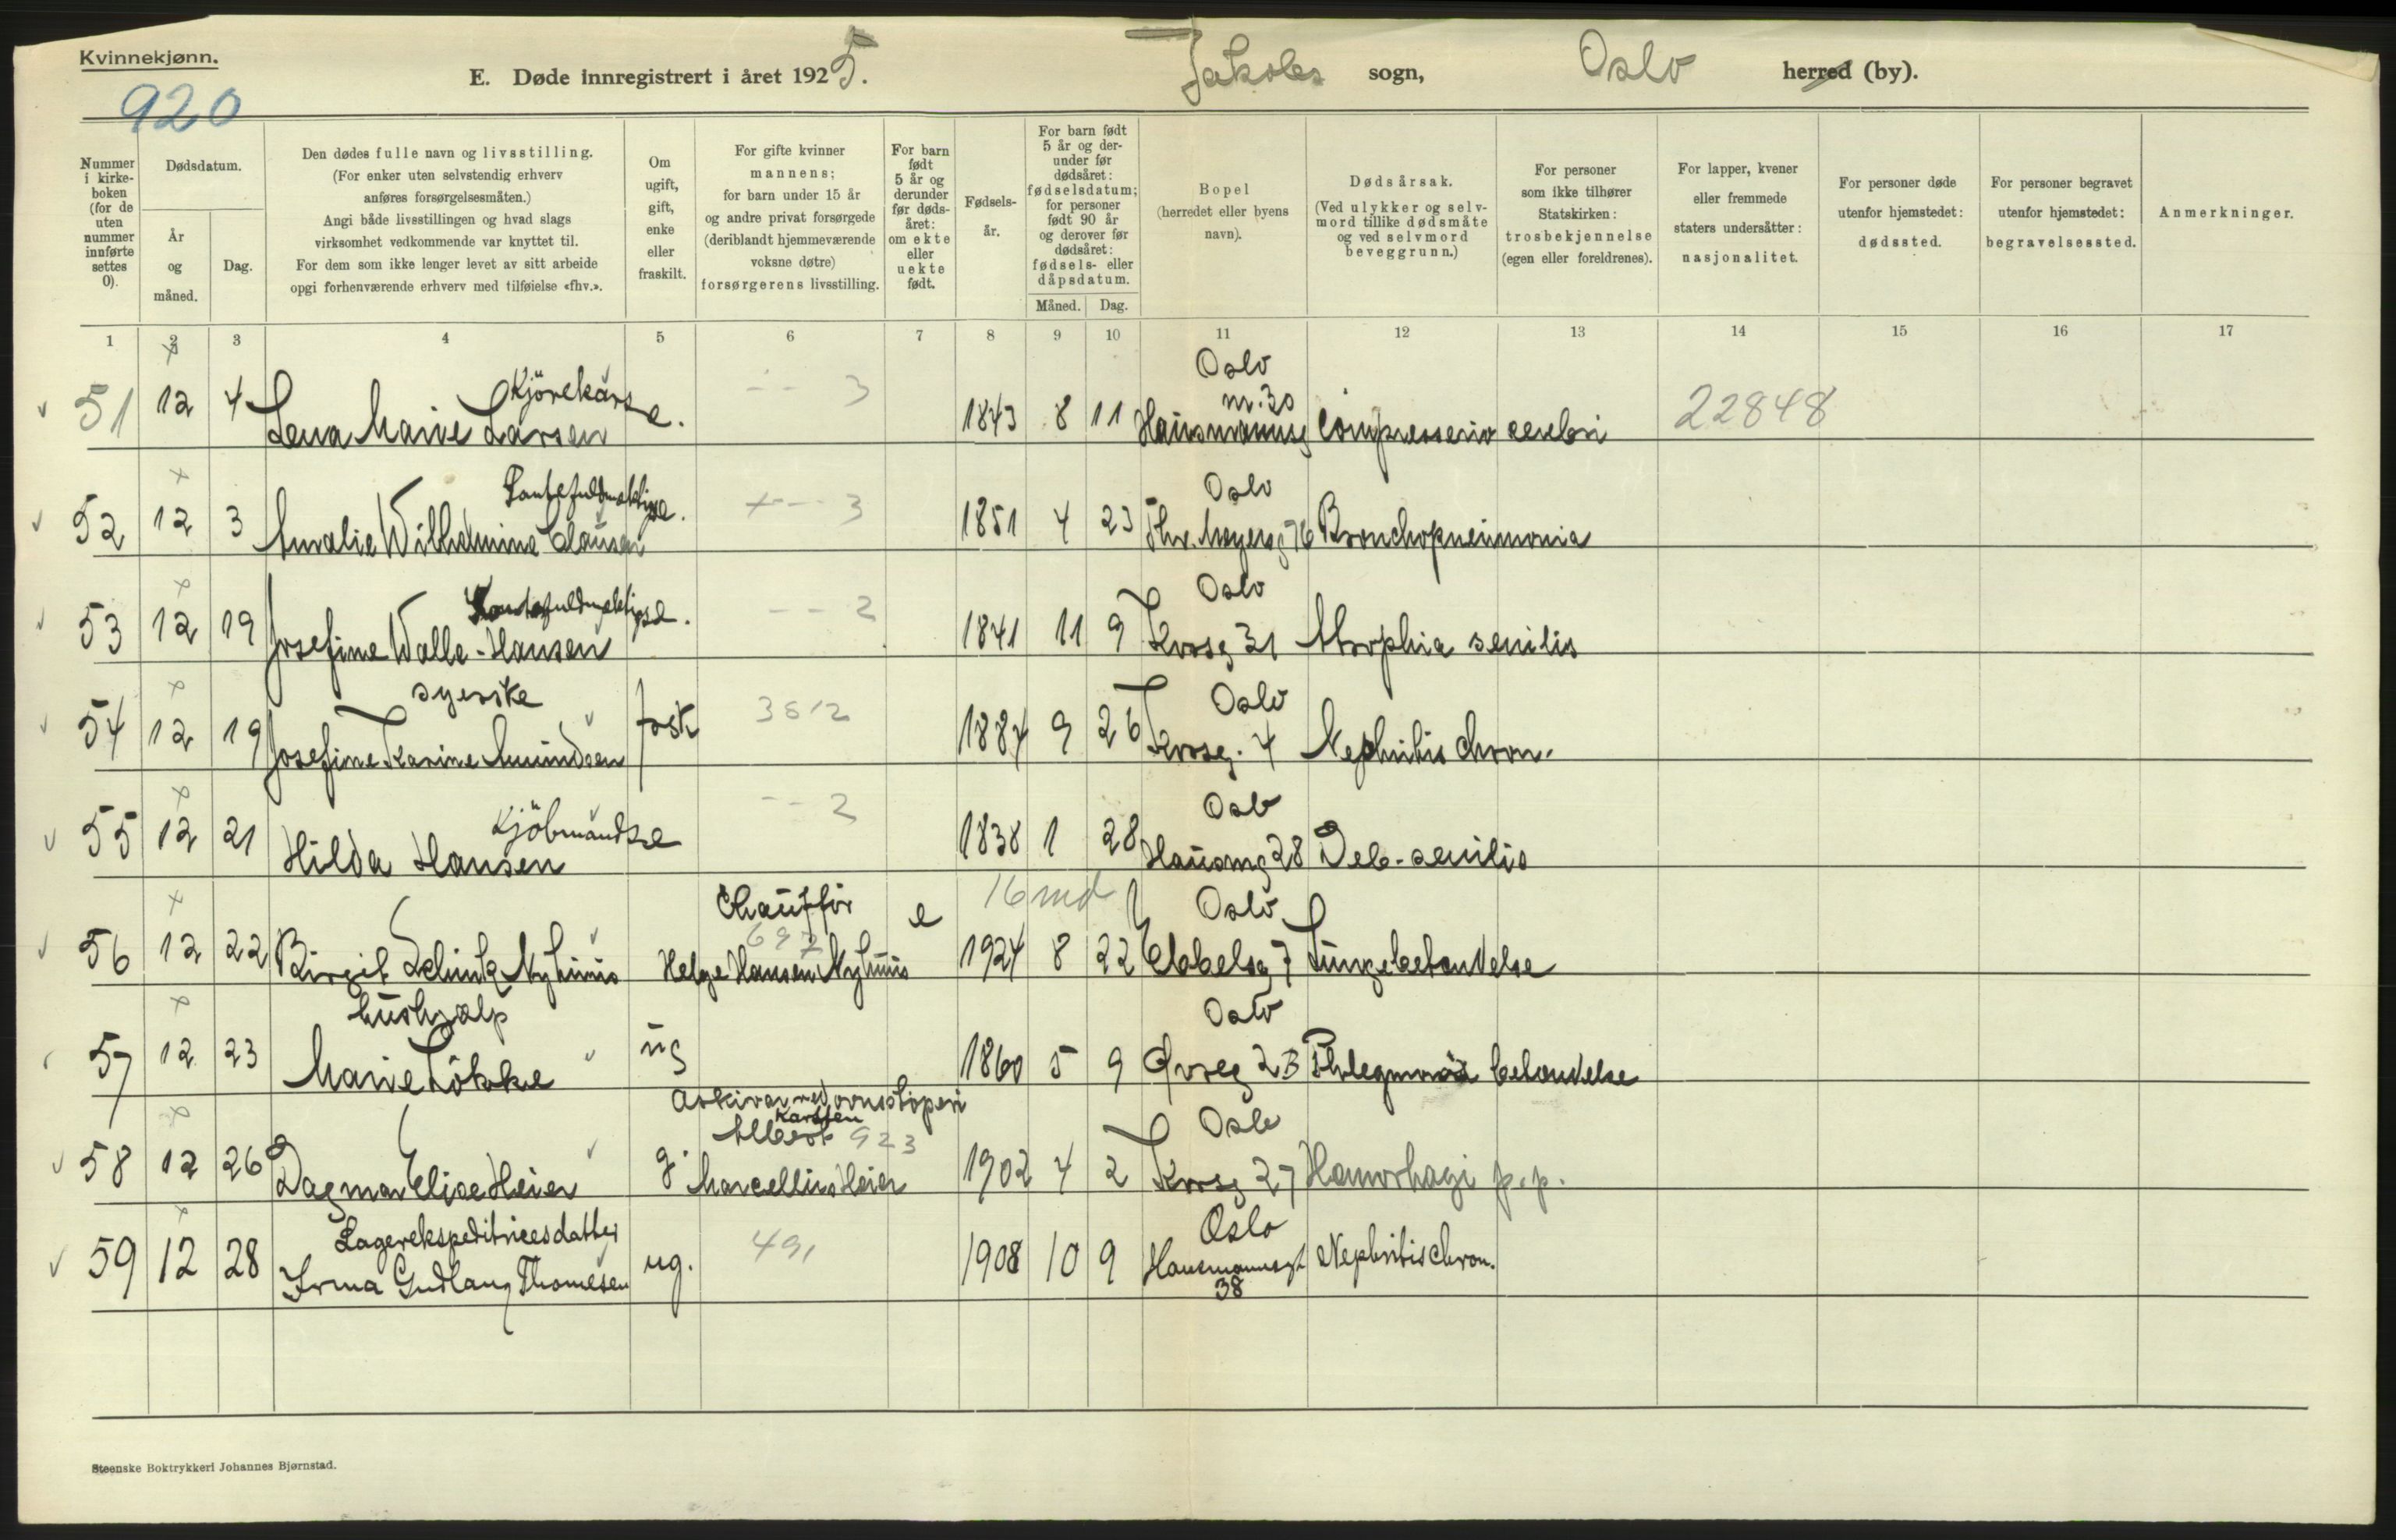 Kvinnekjønn.
920
E. Døde innregistrert i året 1925. Jakobs sogn, Oslo herred (by).
Nummer i kirke-boken (for de uten nummer innførte settes 0).
Dødsdatum.
År og måned.
Dag.
Den dødes fulle navn og livsstilling.
(For enker uten selvstendig erhverv
anføres forsørgelsesmåten.)
Angi både livsstillingen og hvad slags
virksomhet vedkommende var knyttet til.
For dem som ikke lenger levet av sitt arbeide
opgi forhenværende erhverv med tilføielse «fhv.».
Om ugift, gift, enke eller fraskilt.
For gifte kvinner
mannens;
for barn under 15 år
og andre privat forsørgede
(deriblandt hjemmeværende
voksne døtre)
forsørgerens livsstilling.
For barn født 5 år og derunder før døds-året: om ekte eller uekte født.
Fødsels-år.
For barn født 5 år og der-under før dødsåret: fødselsdatum; for personer født 90 år og derover før dødsåret: fødsels- eller dåpsdatum.
Måned. Dag.
Bopel
(herredet eller byens
navn).
Dødsårsak.
(Ved ulykker og selv-
mord tillike dødsmåte
og ved selvmord
beveggrunn.)
For personer
som ikke tilhører
Statskirken:
trosbekjennelse
(egen eller foreldrenes).
For lapper, kvener
eller fremmede
staters undersåtter:
nasjonalitet.
For personer døde
utenfor hjemstedet:
dødssted.
For personer begravet
utenfor hjemstedet:
begravelsessted.
Anmerkninger.
1 2 3 4 5 6 7 8 9 10 11 12 13 14 15 16 17
Kjörekars e. -- 3 Oslo
51 12 4 Lena Marie Larsen 1843 8 11 Hausmannsg nr. 30 Compressio cerebri 22848
Oslo
52 12 3 Amalie Wilhelmine Clausen e. 3 1851 4 23 Thv. Meyersg 76 Bronchopneumonia
Oslo
53 12 19 Josefine Walle-Hansen e. -- 2 1841 11 9 Torvg 31 Atrophia senilis
syerske Oslo
54 12 19 Josefine Karine Amundsen frsk 3512 1884 9 26 4 Nephritis chron.
Kjöbmands e -- 2 Oslo
55 12 21 Hilda Hansen 1838 1 28 Hausmg 28 Deb. senilis
Chaufför e 16 md Oslo
56 12 22 Birgit Nyhuus Helge Hansen Nyhuus 697 1924 8 22 Ebbelsg 7 Lungebetendelse
hushjælp Oslo
57 12 23 Marie Lökke ug 1860 5 9 2B Phlegmonös betendelse
Karsten Oslo
Albert 923
58 12 26 Dagmar Elise Heier g. Marcellius Heier 1902 4 2 27 Hemorhagi p.p.
Lagerekspeditricesdatter Oslo
59 12 28 Irma Gudlaug Thomesen ug. 491 1908 10 9 Hausmannsgt 38 Nephritis chron.
Steenske Boktrykkeri Johannes Bjørnstad.